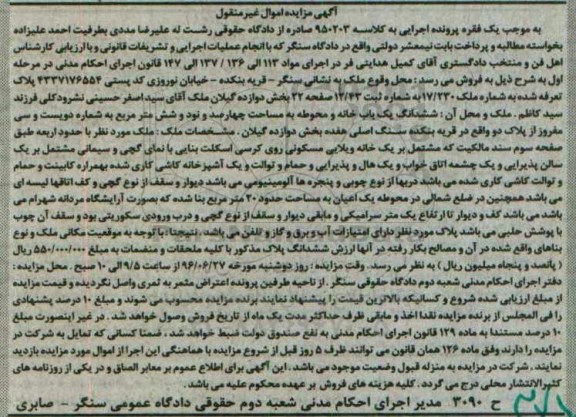 آگهی مزایده اموال غیرمنقول
به موجب یک فقره پرونده اجرایی به کلاسه ۹۵۰۲۰۳ صادره از دادگاه حقوقی رشت له علیرضا مددی بطرفیت احمد علیزاده
بخواسته مطالبه و پرداخت بابت نیمعشر دولتی واقع در دادگاه سنگر که با انجام عملیات اجرایی و تشریفات قانونی و با ارزیابی کارشناس
اهل فن و منتخب دادگستری آقای کمیل هدایتی فر در اجرای مواد ۱۱۳ الی ۱۳۶ / ۱۳۷ الی ۱۴۷ قانون اجرای احکام مدنی در مرحله
اول به شرح ذیل به فروش می رسد: محل وقوع ملک به نشانی سنگر - قریه بنکده - خیابان نوروزی کد پستی ۴۳۳۷۱۷۶۵۵۴ پلاک
تعرفه شده به شماره ملک ۱۷/۲۳۰ به شماره ثبت ۱۲/۴۳ صفحه ۳۲ بخش دوازده گیلان ملک آقای سید اصغر حسینی نشرودکلی فرزند
سید کاظم . ملک و محل آن : ششدانگ یک باب خانه و محوطه به مساحت چهارصد و نود و شش متر مربع به شماره دویست و سی
مفروز از پلاک دو واقع در قریه بنکده سنگ اصلی هفده بخش دوازده گیلان . مشخصات ملک : ملک مورد نظر با حدود اربعه طبق
صفحه سوم سند مالکیت که مشتمل بر یک خانه ویلایی مسکونی روی کرسی اسکلت بنایی با نمای گچی و سیمانی مشتمل بر یک
سالن پذیرایی و یک چشمه اتاق خواب و یک هال و پذیرایی و حمام و توالت و یک آشپزخانه کاشی کاری شده بهمراه کابینت و حمام
و توالت کاشی کاری شده می باشد دربها از نوع چوبی و پنجره ها آلومینیومی می باشد دیوار و سقف از نوع گچی و کف اتاقها لیسه ای
می باشد همچنین در ضلع شمالی در محوطه یک اعیان به مساحت حدود ۲۰ متر مربع بنا شده که بصورت آرایشگاه مردانه شهرام می
می باشد می باشد کف و دیوار تا ارتفاع یک متر سرامیکی و مابقی دیوار و سقف از نوع گچی و درب ورودی سکوریتی بود و سقف آن چوب
با پوشش حلبی می باشد پلاک مورد نظر دارای امتیازات آب و برق و گاز و تلفن می باشد. نتیجتا: با توجه به موقعیت مکانی ملک و نوع
بناهای واقع شده در آن و مصالح بکار رفته در آنها ارزش ششدانگ پلاک مذکور با کلیه ملحقات و منضمات به مبلغ ۵۵۰/۰۰۰/۰۰۰ ریال
( پانصد و پنجاه میلیون ریال ) به نظر می رسد. وقت مزایده : روز دوشنبه مورخه ۹۶/۰۶/۲۷ از ساعت ۹/۵ الی ۱۰ صبح . محل مزایده :
دفتر اجرای احکام مدنی شعبه دوم دادگاه حقوقی سنگر . از ناحیه طرفین پرونده اعتراض مثمر به ثمری واصل نگردیده و قیمت مزایده
از مبلغ ارزیابی شده شروع و کسانیکه بالاترین قیمت را پیشنهاد نمایند برنده مزایده محسوب می شوند و مبلغ ۱۰ درصد پشنهادی
را فی المجلس از برنده مزایده نقدا اخذ و مابقی ظرف حداکثر مدت یک ماه از تاریخ فروش وصول خواهد شد . در غیر اینصورت مبلغ
۱۰ درصد مستندا به ماده ۱۲۹ قانون اجرای احکام مدنی به نفع صندوق دولت ضبط خواهد شد . ضمنا کسانی که تمایل به شرکت در
مزایده را دارند وفق ماده ۱۲۶ همان قانون می توانند ظرف ۵ روز قبل از شروع مزایده با هماهنگی این اجرا از اموال مورد مزایده بازدید
نمایند . شرکت در مزایده به منزله قبول وضعیت موجود می باشد . این آگهی برای اطلاع عموم بر معابر الصاق و در یکی از روزنامه های
کثیرالانتشار محلی درج می گردد . کلیه هزینه های فروش بر عهده محکوم علیه می باشد.
ح ۳۰۹۰ مدیر اجرای احکام مدنی شعبه دوم حقوقی دادگاه عمومی سنگر - صابری